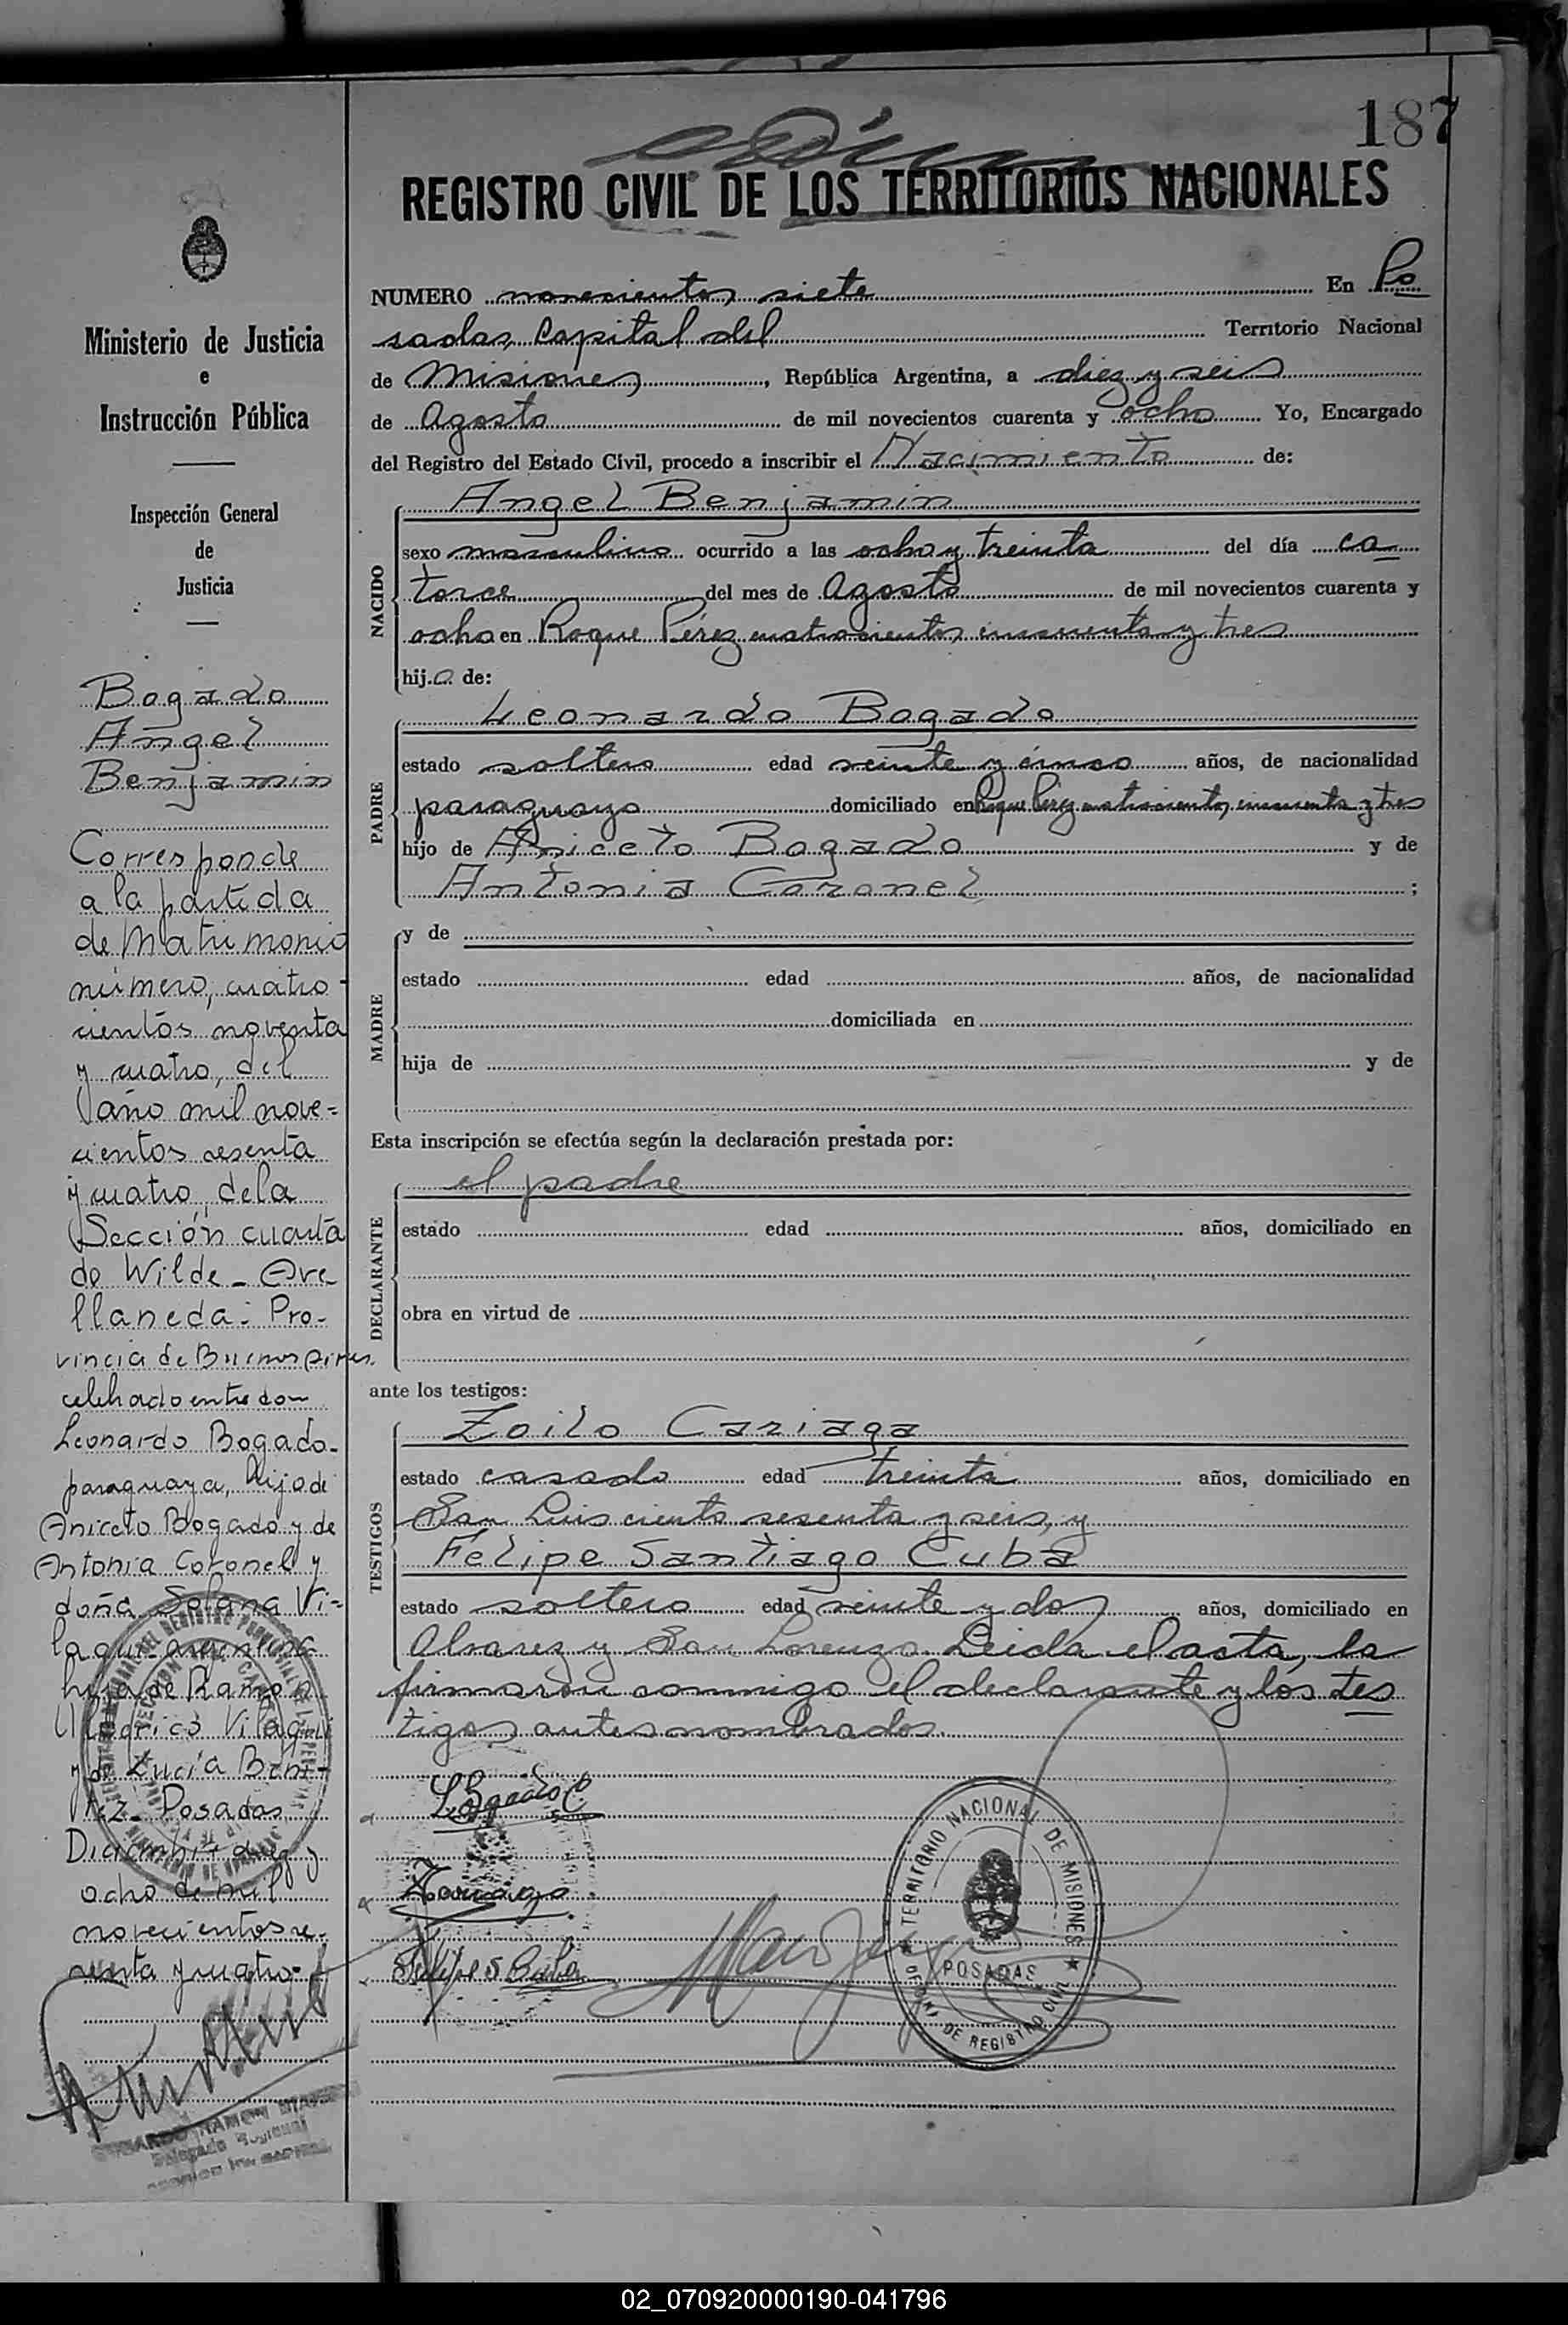 187
REGISTRO CIVIL DE LOS TERRITORIOS NACIONALES
NUMERO novecientos siete En Po
sadas, Capital del Territorio Nacional
de Misiones, República Argentina, a diez y seis
de Agosto de mil novecientos cuarenta y ocho Yo, Encargado
del Registro del Estado Civil, procedo a inscribir el Nacimiento de:
NACIDO
Angel Benjamin
sexo masculino ocurrido a las ocho y treinta del día ca
torce del mes de Agosto de mil novecientos cuarenta y
ocho en Roque Pérez cuatrocientos cincuenta y tres
hijo de:
PADRE
Leonardo Bogado
estado soltero edad veinte y cinco años, de nacionalidad
paraguayo domiciliado en Roque Pérez cuatrocientos cincuenta y tres
hijo de Aniceto Bogado y de
Antonia Coronel ;
MADRE
y de
estado edad años, de nacionalidad
domiciliada en
hija de y de
Esta inscripción se efectúa según la declaración prestada por:
DECLARANTE
el padre
estado edad años, domiciliado en
obra en virtud de
ante los testigos:
TESTIGOS
Zoilo Cariaga
estado casado edad treinta años, domiciliado en
San Luis ciento sesenta y seis, y
Felipe Santiago Cuba
estado soltero edad veinte y dos años, domiciliado en
Alvarez y San Lorenzo. Leida el acta, la
firmaron conmigo el declarante y los tes
tigos antes nombrados.
L Bogado C
Z Cariaga
Felipe S Cuba
TERRITORIO NACIONAL DE MISIONES
POSADAS
OFICINA DE REGISTRO CIVIL
Ministerio de Justicia
e
Instrucción Pública
Inspección General
de
Justicia
Bogado
Angel
Benjamin
Corresponde
a la partida
de Matrimonio
número, cuatro-
cientos noventa
y cuatro, del
año mil nove=
cientos sesenta
y cuatro, de la
Sección cuarta
de Wilde - Ave
llaneda - Pro-
vincia de Buenos Aires.
celebrado entre don
Leonardo Bogado-
paraguayo, hijo de
Aniceto Bogado y de
Antonia Coronel y
doña Solana Vi=
lagur argentina
hija de Ramon
Vilagur
y de Lucía Bení-
tez. Posadas,
Diciembre diez y
ocho de mil
novecientos se-
senta y cuatro.-
02_070920000190-041796